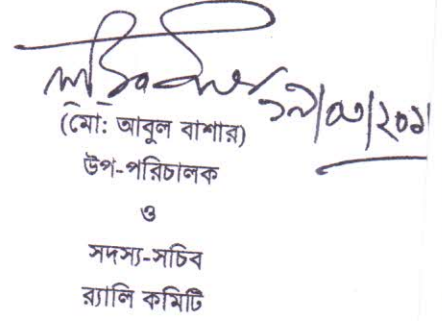 (মো: আবুল বাশার)
উপ-পরিচালক
ও
সদস্য-সচিব
র‍্যালি কমিটি